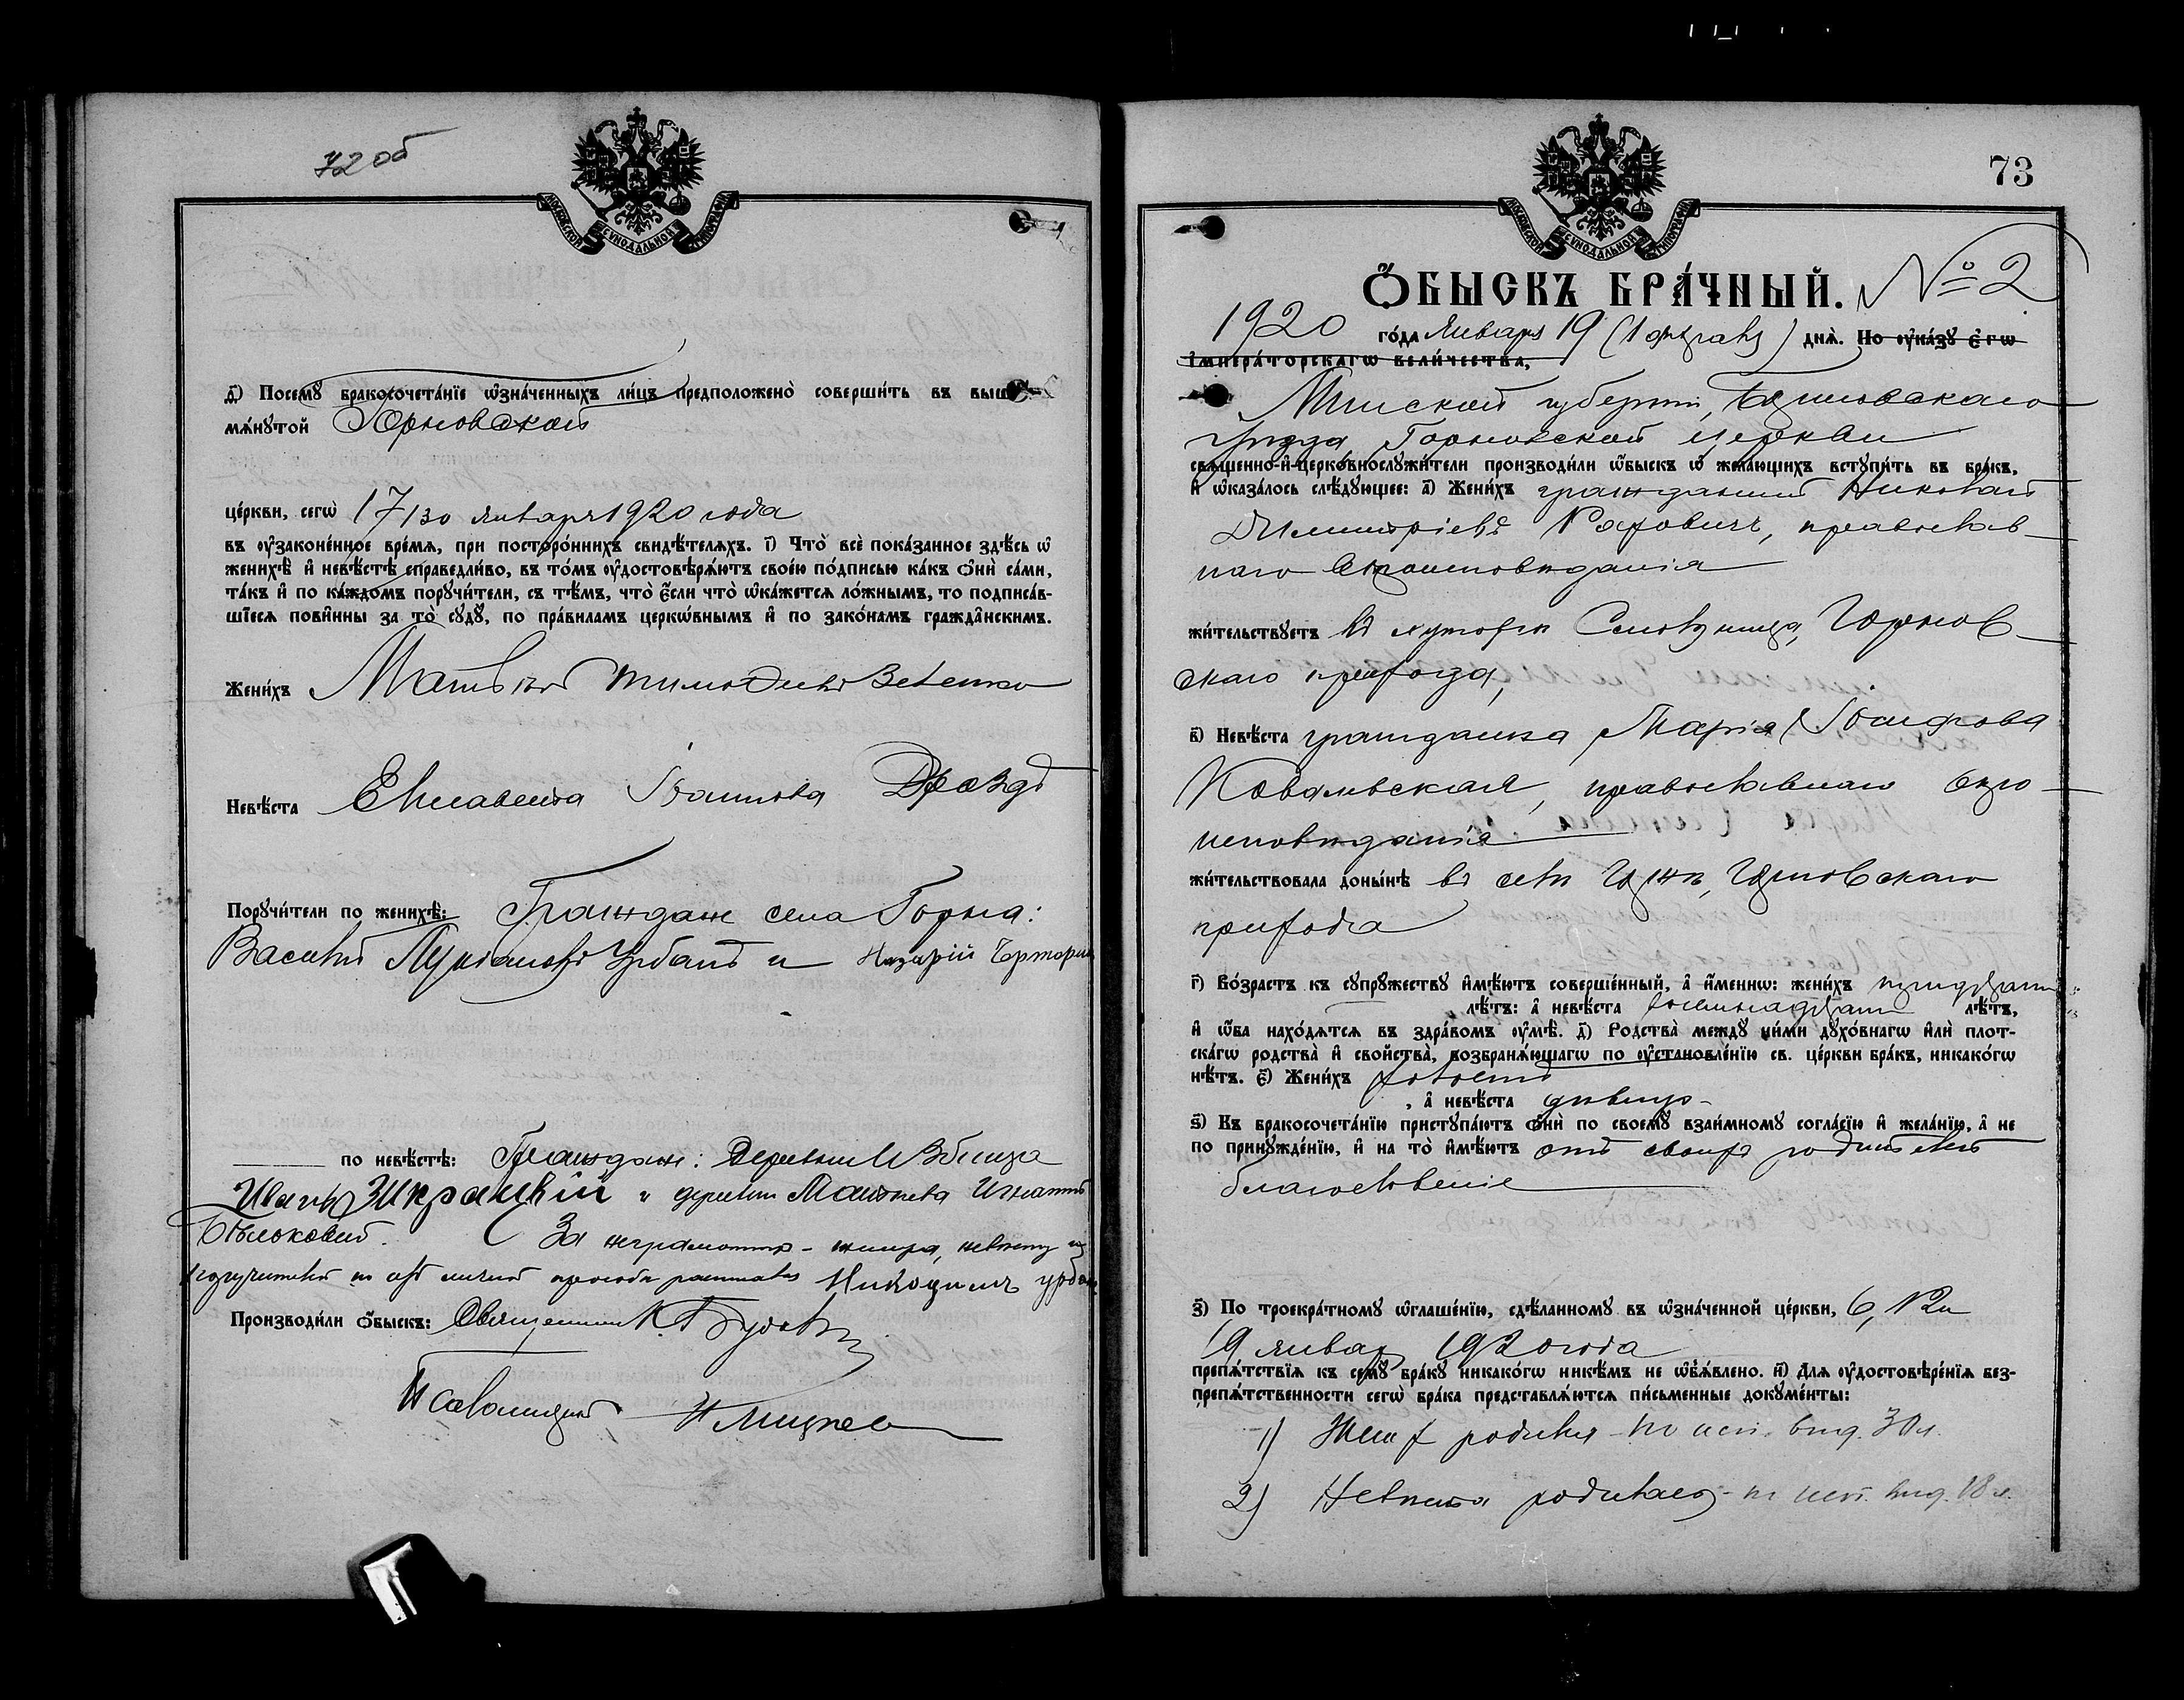 72 об
МОСКОВСКОЙ СѴНОДАЛЬНОЙ ТИПОГРАФІИ
д҃) Посемꙋ бракосочета́нїе ѡ҆зна́ченныхъ ли́цъ предположено̀ соверши́ть въ выше
мѧ́нꙋтой Горновской
це́ркви, сегѡ̀ 17/30 января 1920 года
въ ᲂу҆законе́нное вре́мѧ, при посторо́ннихъ свидѣ́телѧхъ. і҃) Что̀ всѐ пока́занное здѣ́сь ѡ҆
женихѣ̀ и҆ невѣ́стѣ справедли́во, въ то́мъ ᲂу҆достовѣрѧ́ютъ свое́ю по́дписью ка́къ ѻ҆нѝ са́ми,
та́къ и҆ по ка́ждомъ порꙋчи́тели, съ тѣ́мъ, что̀ є҆́сли что̀ ѡ҆ка́жетсѧ ло́жнымъ, то подписа́в-
шїесѧ пови́нны за то̀ сꙋдꙋ̀, по пра́виламъ церкѡ́внымъ и҆ по зако́намъ гражда̂нскимъ.
Жени́хъ Матвѣй
Невѣ́ста Елисавета Иванова Дроздъ
Порꙋчи́тели по женихѣ̀: Граждане села Горна:
Василій Лукіановъ Урбанъ и Назарій
по невѣ́стѣ: Граждане: деревни
Иванъ и деревни Игнатій
За неграмотныхъ - жениха, невѣсту и
поручителей по ихъ личной просьбѣ Никодимъ Урбан
Производи́ли ѻ҆́быскъ: Священникъ К.
73
МОСКОВСКОЙ СѴНОДАЛЬНОЙ ТИПОГРАФІИ
Ѻ҆БЫСКЪ БРА́ЧНЫЙ. № 2
1920 го́да Января 19 (1 февраля) днѧ̀. По ᲂу҆ка́зꙋ є҆гѡ̀
и҆мпера́торскагѡ вели́чества,
Минской губерніи, Борисовскаго
уѣзда, Горновской церкви
свѧще́нно-и҆-церко́внослꙋжи́тели производи́ли ѻ҆́быскъ ѡ҆ жела́ющихъ встꙋпи́ть въ бра́къ,
и҆ ѡ҆каза́лось слѣ́дꙋющее: а҃) Жени́хъ гражданинъ Николай
Димитріевъ православ-
наго вѣроисповѣданія
жи́тельствꙋетъ въ хуторѣ Горнов-
скаго прихода,
в҃) Невѣ́ста гражданка Марія
Ковалевская, православнаго вѣро-
исповѣданія
жи́тельствовала доны́нѣ въ селѣ Горнѣ, Горновскаго
прихода
г҃) Во́зрастъ къ сꙋпрꙋ́жествꙋ и҆мѣ́ютъ соверше́нный, а҆ и҆́меннѡ: жени́хъ тридцати
лѣ́тъ: а҆ невѣ́ста восемнадцати лѣ́тъ,
и҆ ѻ҆́ба нахо́дѧтсѧ въ здра́вомъ ᲂу҆мѣ̀. д҃) Родства̀ междꙋ̀ ни́ми дꙋхо́внагѡ и҆лѝ плот-
ска́гѡ родства̀ и҆ свойства̀, возбранѧ́ющагѡ по ᲂу҆становле́нїю св. це́ркви бра́къ, никако́гѡ
нѣ́тъ. є҃) Жени́хъ холостъ
, а҆ невѣ́ста дѣвица
ѕ҃) Къ бракосочета́нїю пристꙋпа́ютъ ѻ҆нѝ по своемꙋ̀ взаи́мномꙋ согла́сїю и҆ жела́нїю, а҆ не
по принꙋжде́нїю, и҆ на то̀ и҆мѣ́ютъ отъ своихъ родителей
благословеніе
з҃) По троекра́тномꙋ ѡ҆глаше́нїю, сдѣ́ланномꙋ въ ѡ҆зна́ченной це́ркви, 6, 12 и
19 января 1920 года
препѧ́тствїѧ къ семꙋ̀ бра́кꙋ никако́гѡ никѣ́мъ не ѡ҆б̾ѧ́влено. и҃) Длѧ ᲂу҆достовѣре́нїѧ без-
препѧ́тственности сегѡ̀ бра́ка представлѧ́ютсѧ пи́сьменные докꙋме́нты:
1) Жених родился - по исп. вѣд. 30 л.
2) Невѣста родилась - по исп. вѣд. 18 л.